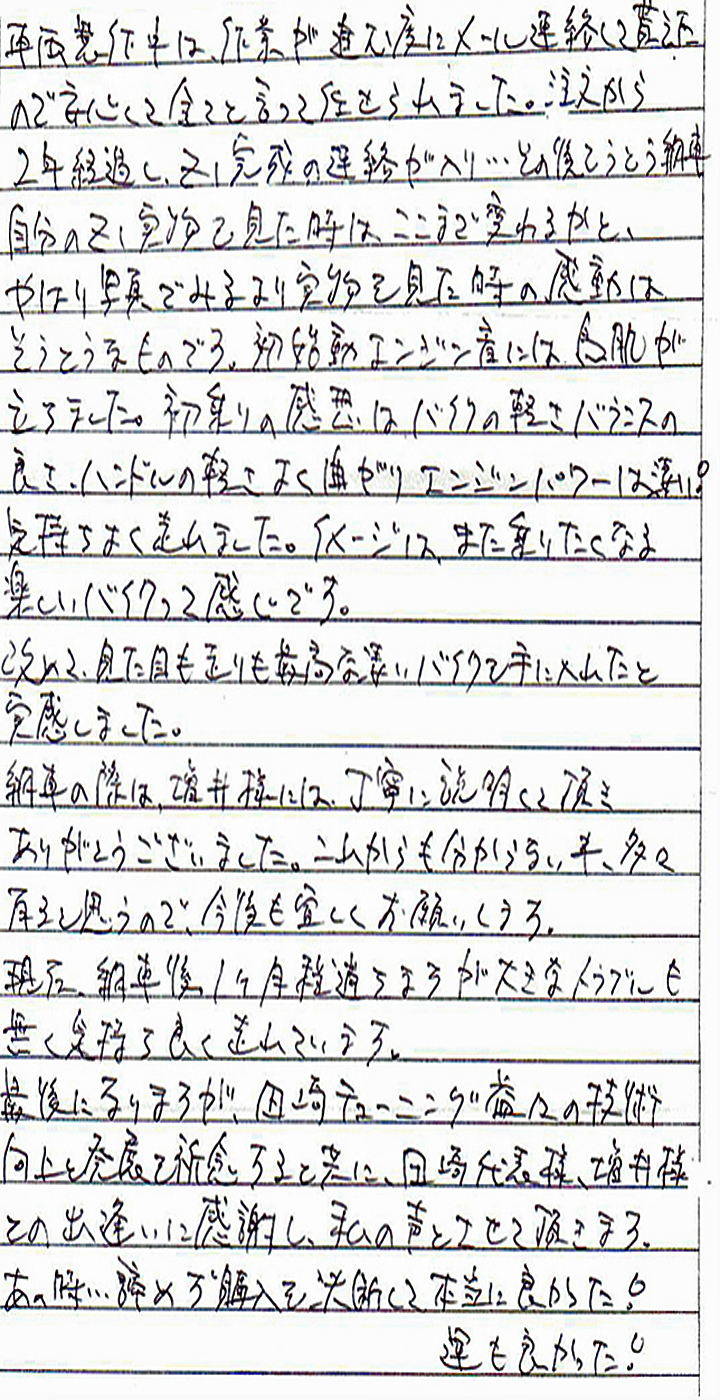 車両製作中は、作業が進む度にメール連絡して貰えた
ので安心して全てと言って任せられました。注文から
2年経過し、Z1完成の連絡が入り…その後とうとう納車
自分のZ1実物を見た時は、ここまで変わるかと、
やはり写真でみるより実物を見た時の感動は
そうとうなものです。初始動エンジン音には、鳥肌が
立ちました。初乗りの感想はバイクの軽さバランスの
良さ、ハンドルの軽さよく曲がりエンジンパワーは凄い!
気持ちよく走れました。イメージは、また乗りたくなる
楽しいバイクって感じです。
改めて、見た目も走りも最高な凄いバイクを手に入れたと
実感しました。
納車の際は、壇井様には、丁寧に説明して頂き
ありがとうございました。これからも分からない事、多々
有ると思うので、今後も宜しくお願いします。
現在、納車後、1ヶ月程過ちますが大きなトラブルも
無く気持ち良く走れています。
最後になりますが、田崎チューニング益々の技術
向上と発展を祈念すると共に、田崎代表様、壇井様
との出逢いに感謝し、私の声とさせて頂きます。
あの時…諦めず購入を決断して本当に良かった!
運も良かった!